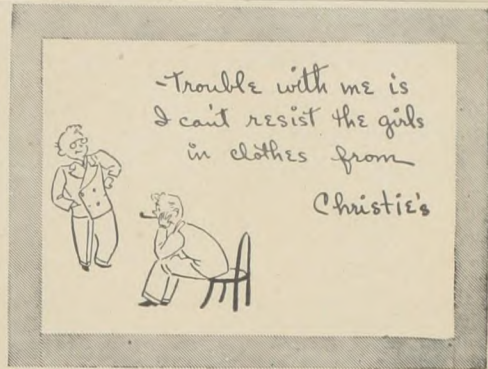 -Trouble with me is
I can't resist the girls
in clothes from
Christie's